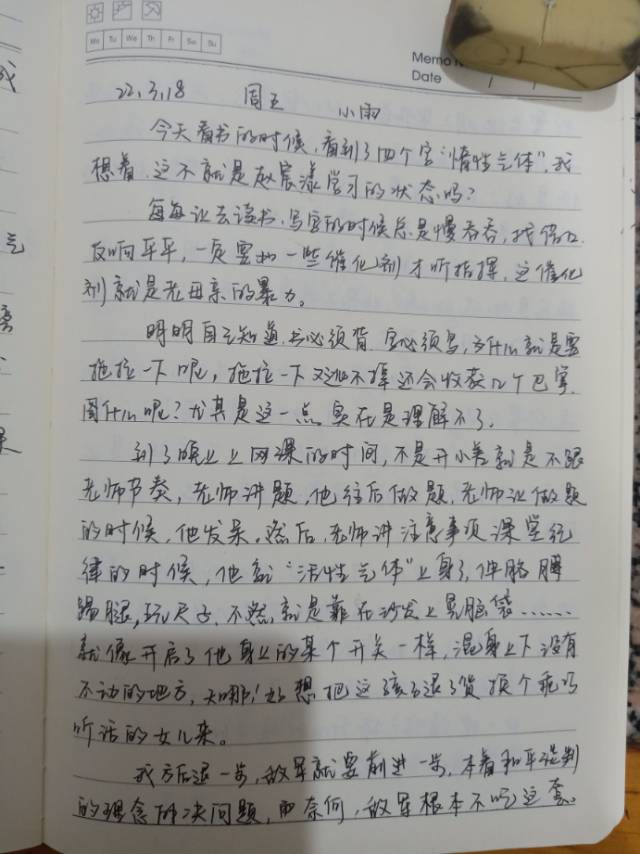 Mo Tu We Th Fr Sa Su
Memo No.
Date / /
22.3.18 周五 小雨
今天看书的时候,看到了四个字“惰性气体”,我
想着,这不就是赵宸漾学习的状态吗?
每每让去读书、写字的时候总是慢吞吞,找借口,
反响平平,一定要加一些催化剂才听指挥,这催化
剂就是老母亲的暴力。
明明自己知道,书必须背,字必须写,为什么就是要
拖拉一下呢,拖拉一下又逃不掉还会收获几个巴掌,
图什么呢?尤其是这一点,实在是理解不了。
到了晚上上网课的时间,不是开小差就是不跟
老师节奏,老师讲题,他往后做题,老师让做题
的时候,他发呆,然后,老师讲注意事项课堂纪
律的时候,他就“活性气体”上身了,伸胳膊
踢腿,玩尺子,不然就是靠在沙发上晃脑袋……
就像开启了他身上的某个开关一样,混身上下没有
不动的地方,天哪!好想把这孩子退了货换个乖巧
听话的女儿来。
我方后退一步,敌军就要前进一步,本着和平谈判
的理念解决问题,而奈何,敌军根本不吃这套。